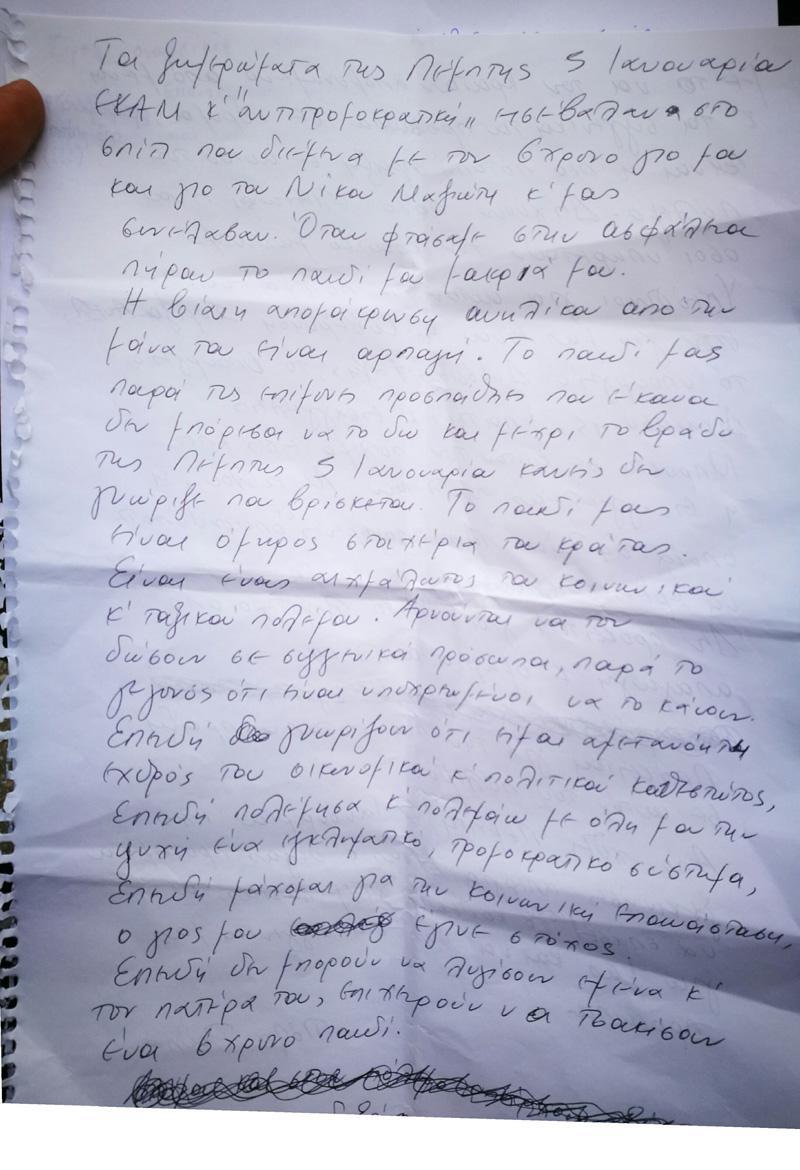 Τα ξημερώματα της Πέμπτης 5 Ιανουαρίου
ΕΚΑΜ κ' "αντιτρομοκρατική" εισέβαλαν στο
σπίτι που διέμενα με τον 6χρονο γιο μου
και γιο του Νίκου Μαζιώτη κ' μας
συνέλαβαν. Όταν φτάσαμε στην ασφάλεια
πήραν το παιδί μου μακριά μου.
Η βίαιη απομάκρυνση ανηλίκου από την
μάνα του είναι αρπαγή. Το παιδί μας
παρά τις επίμονες προσπάθειες που έκανα
δεν μπόρεσα να το δω και μέχρι το βράδυ
της Πέμπτης 5 Ιανουαρίου κανείς δεν
γνώριζε που βρίσκεται. Το παιδί μας
είναι όμηρος στα χέρια του κράτους.
Είναι ένας αιχμάλωτος του κοινωνικού
κ' ταξικού πολέμου. Αρνούνται να τον
δώσουν σε συγγενικά πρόσωπα, παρά το
γεγονός ότι είναι υποχρεωμένοι να το κάνουν.
Επειδή γνωρίζουν ότι είμαι αμετανόητη
εχθρός του οικονομικού κ' πολιτικού καθεστώτος,
Επειδή πολέμησα κ' πολεμάω με όλη μου την
ψυχή ένα εγκληματικό, τρομοκρατικό σύστημα,
Επειδή μάχομαι για την κοινωνική Επανάσταση,
ο γιος μου έγινε στόχος.
Επειδή δεν μπορούν να λυγίσουν εμένα κ'
τον πατέρα του, επιχειρούν να τσακίσουν
ένα 6χρονο παιδί.